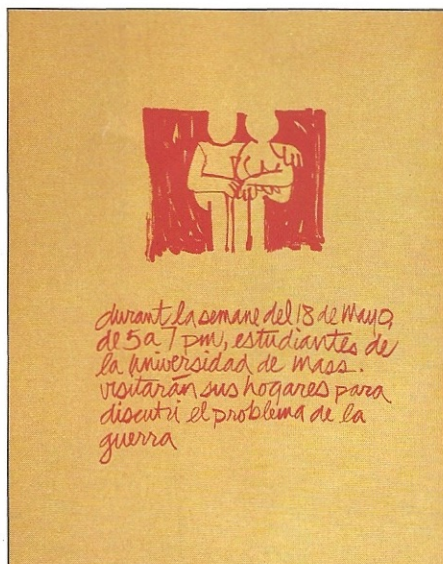 durant la semane del 18 de Mayo,
de 5 a 7 pm, estudiantes de
la Universidad de Mass.
visitarán sus hogares para
discutri el problema de la
guerra